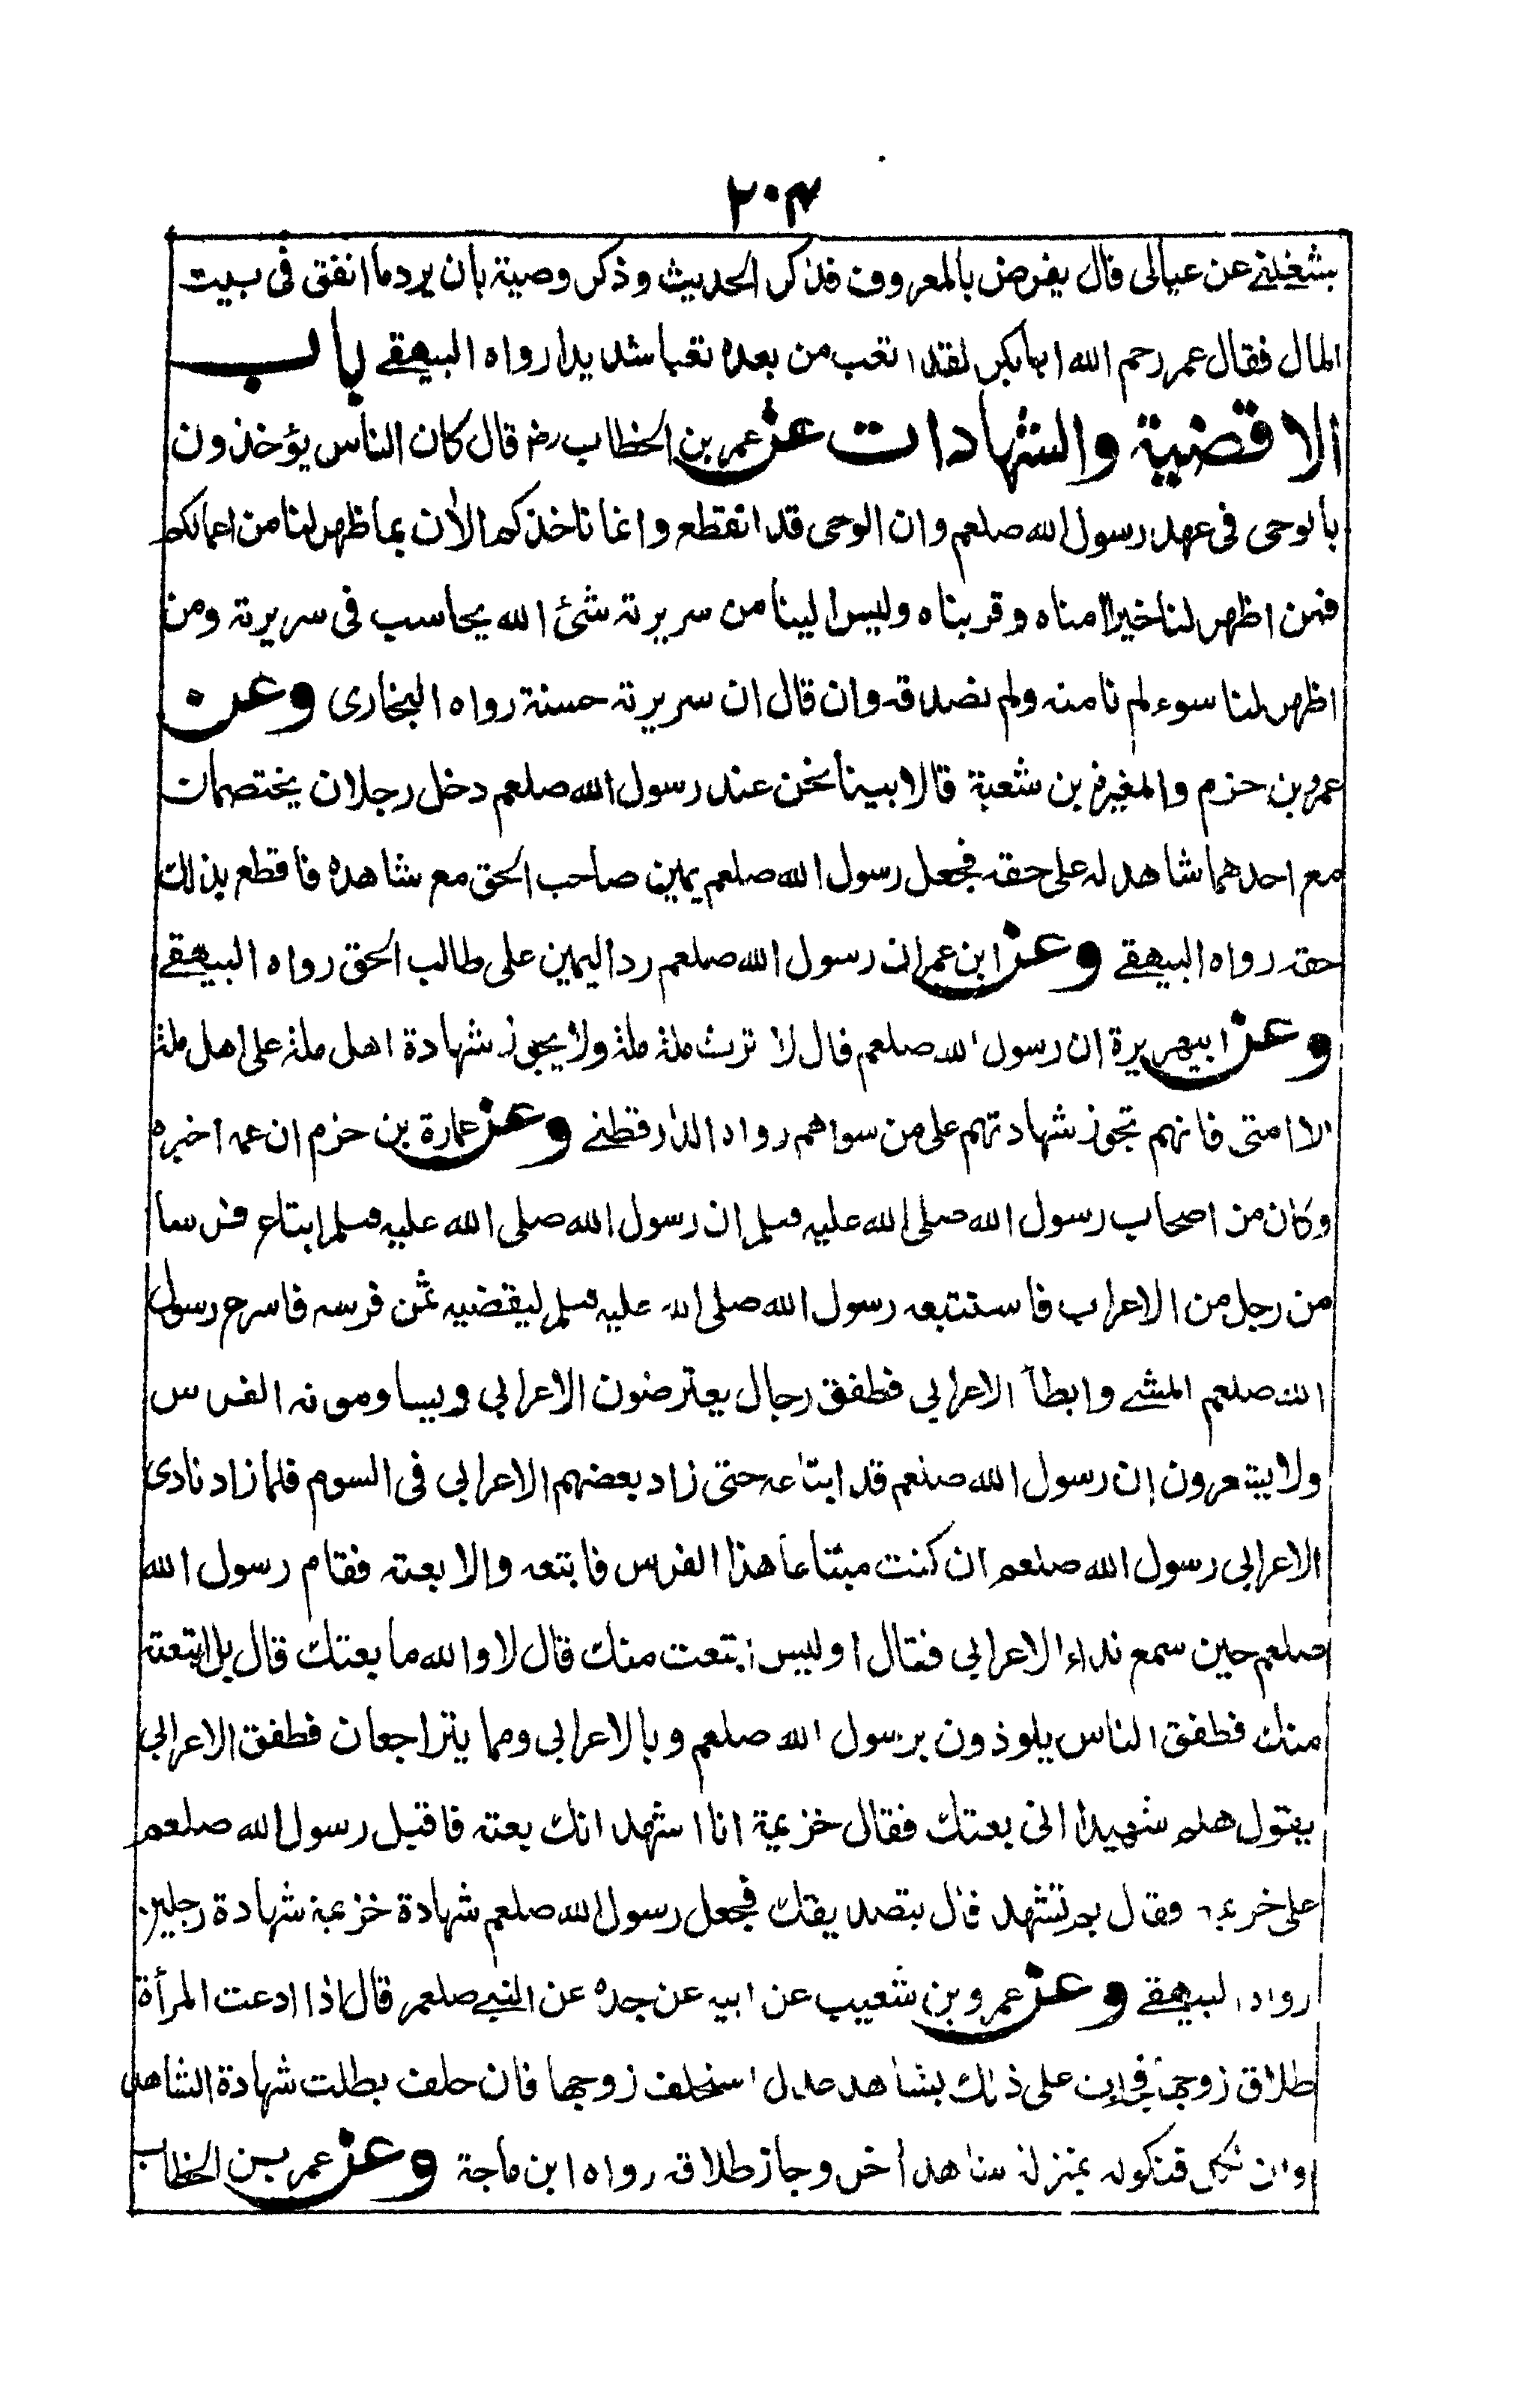 ۲۰۴
يشغلنے عن عيالى قال يفرض بالمعروف فذكر الحديث وذكر وصية بان يرد ما انفق فى بيت
المال فقال عمر رحم الله ابا بكر لقد اتعب من بعده تعبا شديدا رواه البيهقے باب
الاقضية والشهادات عن عمر بن الخطاب رض قال كان الناس يؤخذون
بالوحى فى عهد رسول الله صلعم وان الوحى قد انقطع وانما ناخذكم الاٰن بما ظهر لنا من اعمالكم
فمن اظهر لنا خيرا امناه وقربناه وليس الينا من سريرته شئ الله يحاسب فى سريرته ومن
اظهر لنا سوء لم نامنه ولم نصدقه وان قال ان سريرته حسنة رواه البخارى وعن
عمرو بن حزم والمغيرة بن شعبة قالا بينا نحن عند رسول الله صلعم دخل رجلان يختصمان
مع احدهما شاهد له على حقه فجعل رسول الله صلعم يمين صاحب الحق مع شاهده فاقطع بذلك
حقه رواه البيهقے وعن ابن عمر ان رسول الله صلعم رد اليمين على طالب الحق رواه البيهقے
وعن ابيهريرة ان رسول الله صلعم قال لا ترث ملة ملة ولا يجوز شهادة اهل ملة على اهل ملة
الا امتى فانهم تجوز شهادتهم على من سواهم رواه الدارقطنے وعن عمارة بن حزم ان عمه اخبره
وكان من اصحاب رسول الله صلى الله عليه وسلم ان رسول الله صلى الله عليه وسلم ابتاع فرسا
من رجل من الاعراب فاستتبعه رسول الله صلى الله عليه وسلم ليقضيه ثمن فرسه فاسرع رسول
الله صلعم المشے وابطأ الاعرابى فطفق رجال يعترضون الاعرابى ويساومونه الفرس
ولا يشعرون ان رسول الله صلعم قد ابتاعه حتى زاد بعضهم الاعرابى فى السوم فلما زاد نادى
الاعرابى رسول الله صلعم ان كنت مبتاعا هذا الفرس فابتعه والا بعته فقام رسول الله
صلعم حين سمع نداء الاعرابى فقال اوليس ابتعت منك قال لا والله ما بعتك قال بل ابتعته
منك فطفق الناس يلوذون برسول الله صلعم وبالاعرابى وهما يتراجعان فطفق الاعرابى
يقول هلم شهيدا انى بعتك فقال خزيمة انا اشهد انك بعته فاقبل رسول الله صلعم
على خزيمة وقال بم تشهد قال بتصديقك فجعل رسول الله صلعم شهادة خزيمة شهادة رجلين
رواه البيهقے وعن عمرو بن شعيب عن ابيه عن جده عن النبے صلعم قال اذا ادعت المرأة
طلاق زوجها على ذلك بشاهد عدل استحلف زوجها فان حلف بطلت شهادة الشاهد
وان نكل فنكوله بمنزلة شاهد أخر وجاز طلاقه رواه ابن ماجة وعن عمر بن الخطاب